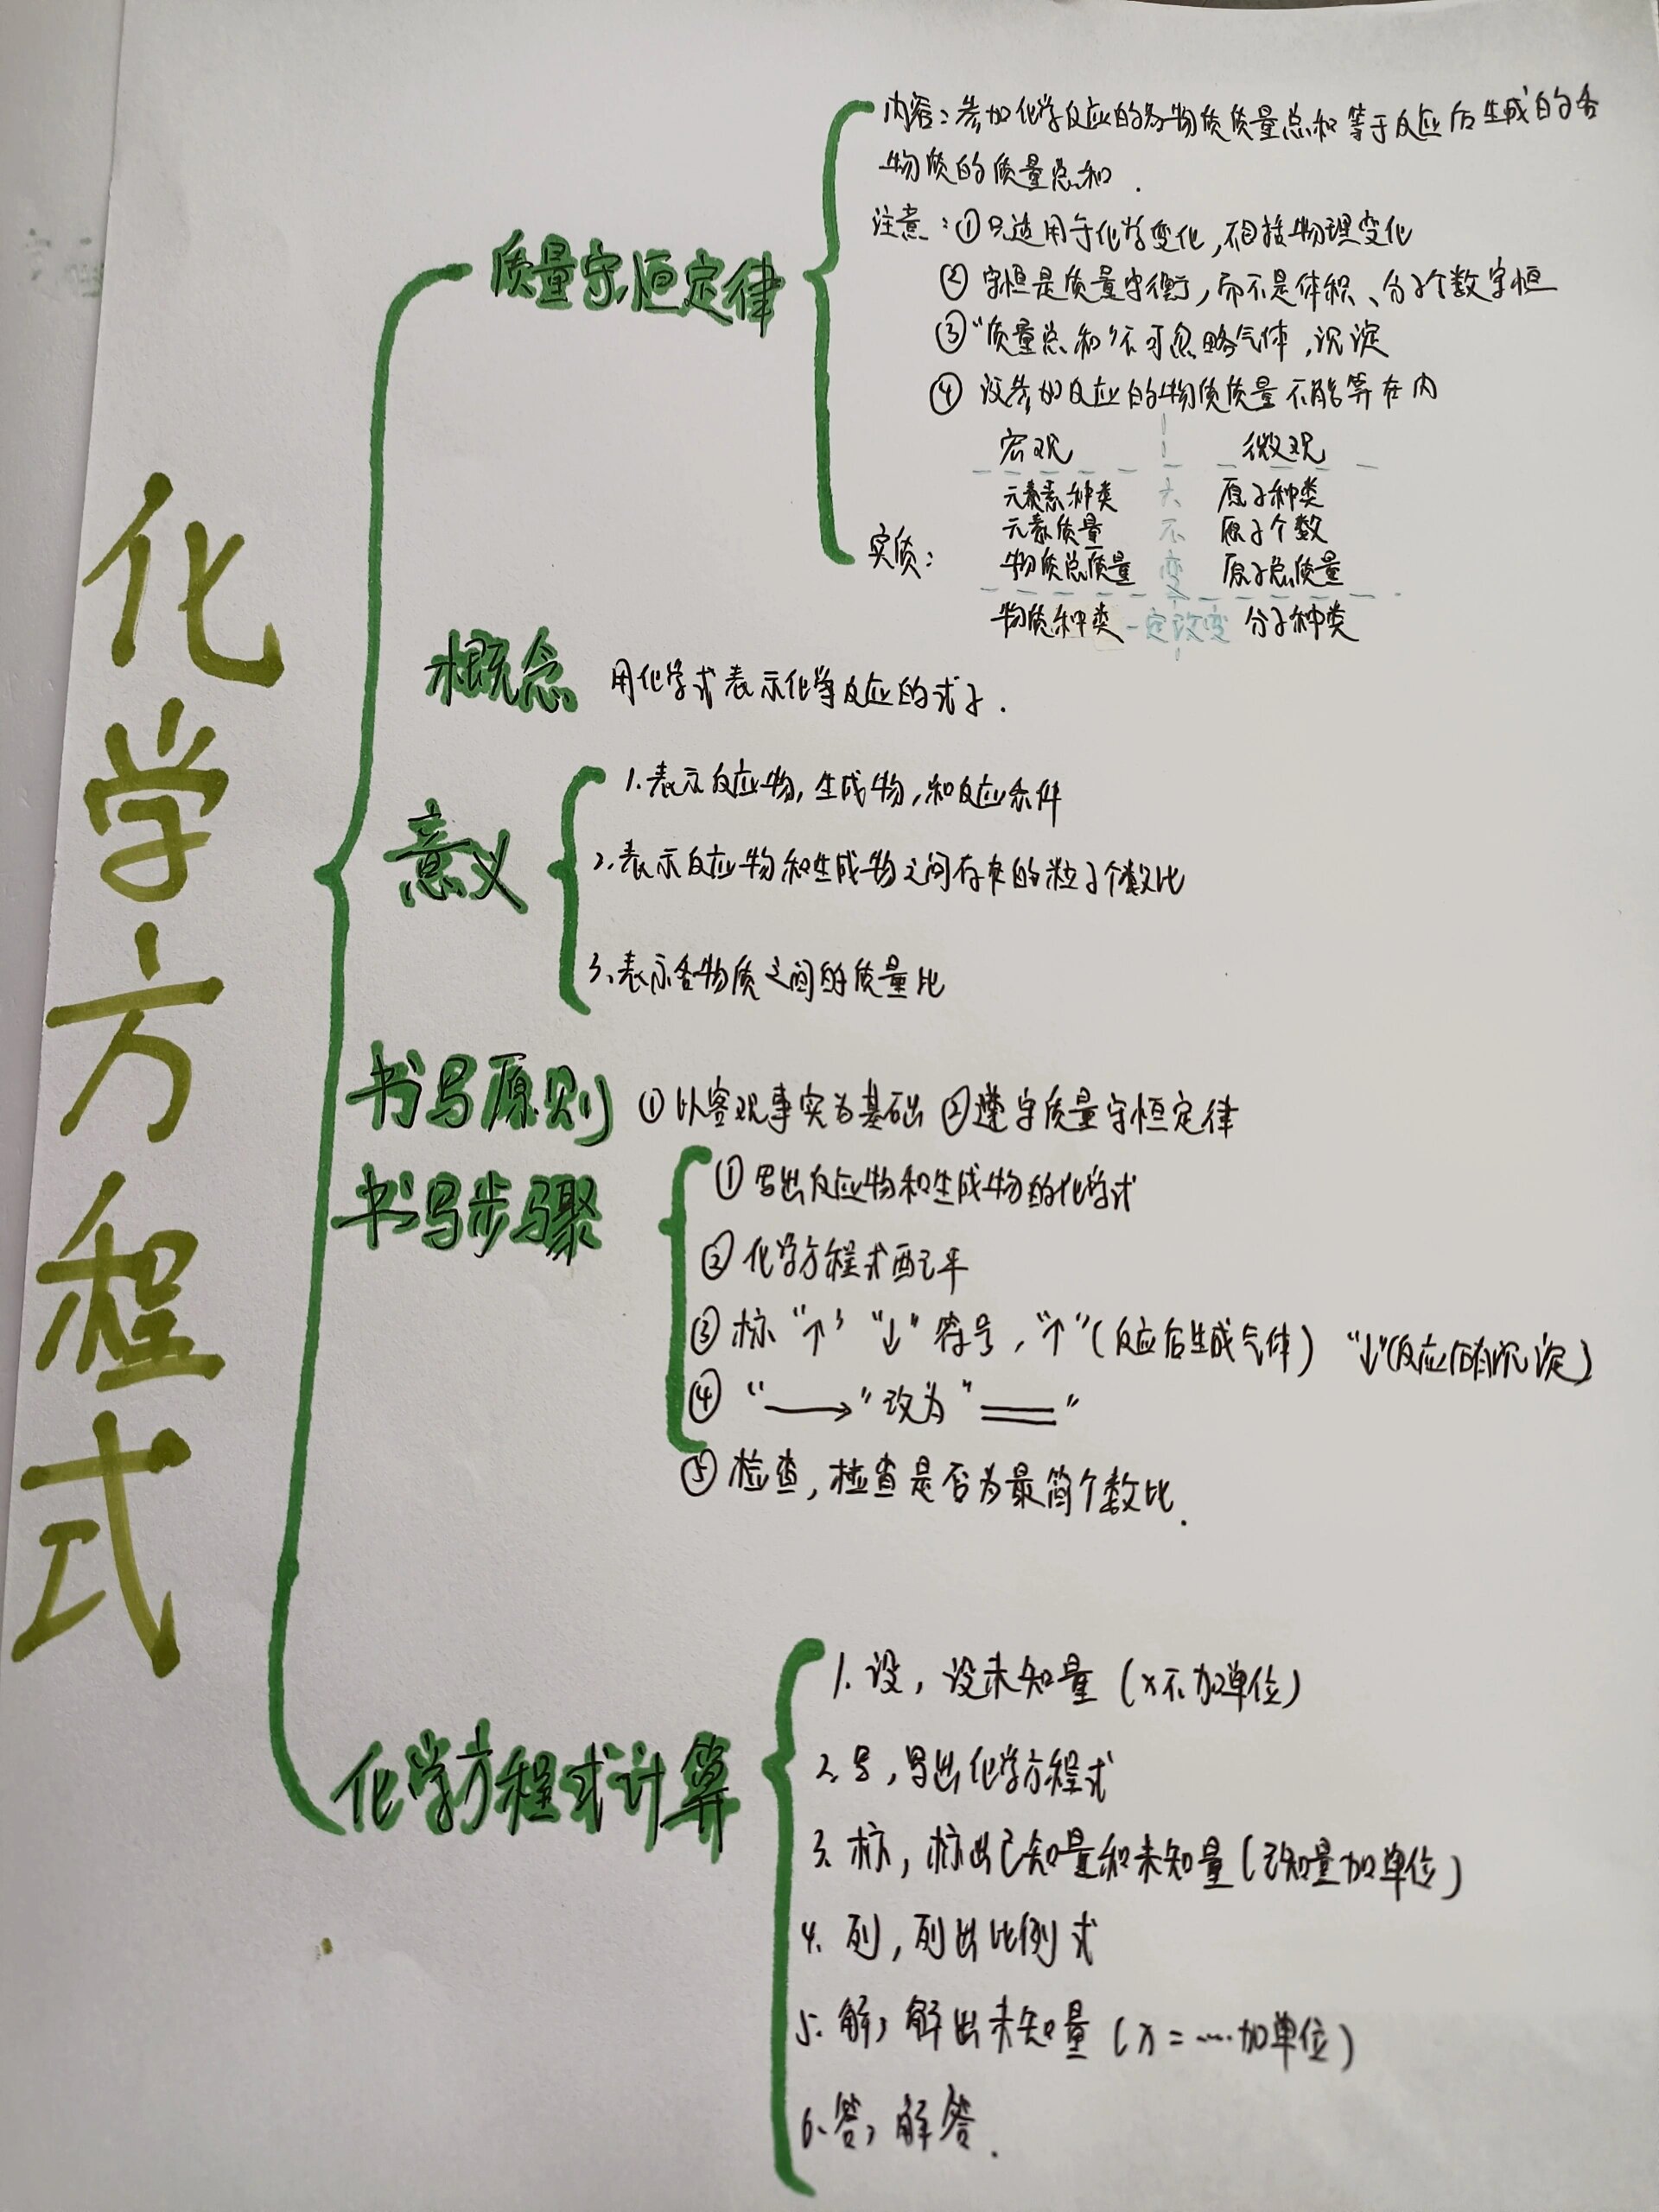 化学方程式
质量守恒定律
内容:参加化学反应的各物质质量总和等于反应后生成的各
物质的质量总和.
注意:①只适用于化学变化,不包括物理变化
②守恒是质量守衡,而不是体积、分子个数守恒
③“质量总和”不可忽略气体,沉淀
④没参加反应的物质质量不能算在内
宏观 微观
元素种类 六 原子种类
元素质量 不 原子个数
实质: 物质总质量 变 原子总质量
物质种类 一定改变 分子种类
概念 用化学式表示化学反应的式子.
意义
1.表示反应物,生成物,和反应条件
2.表示反应物和生成物之间存在的粒子个数比
3.表示各物质之间的质量比
书写原则 ①以客观事实为基础 ②遵守质量守恒定律
书写步骤
①写出反应物和生成物的化学式
②化学方程式配平
③标“↑”“↓”符号,“↑”(反应后生成气体) “↓”(反应后有沉淀)
④“⟶”改为“══”
⑤检查,检查是否为最简个数比.
化学方程式计算
1.设,设未知量(x不加单位)
2.写,写出化学方程式
3.标,标出已知量和未知量(已知量加单位)
4.列,列出比例式
5.解,解出未知量(x=……加单位)
6.答,解答.